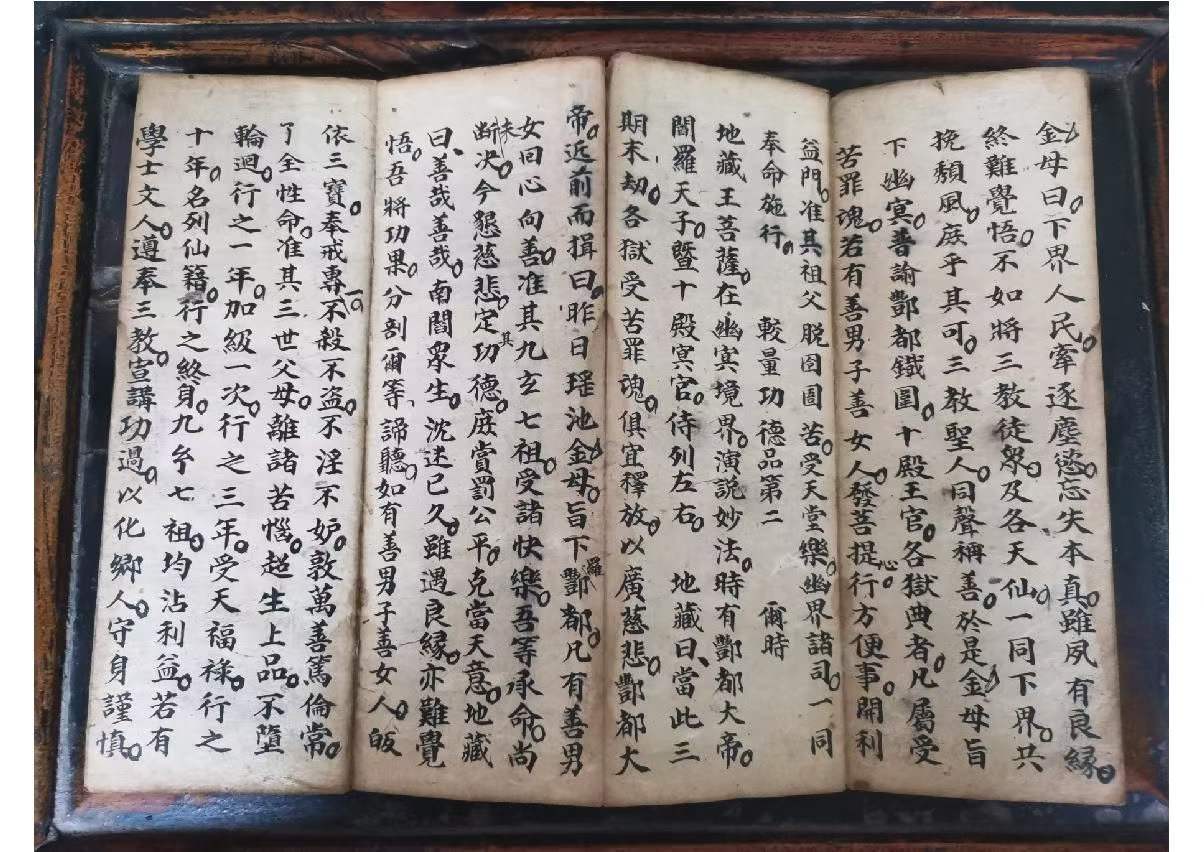 金母曰。下界人民。牽逐塵慾。忘失本真。雖夙有良緣。
終難覺悟。不如將三教徒衆。及各天仙。一同下界。共
挽頹風。庻乎其可。三教聖人。同聲稱善。於是金母旨
下幽冥。普諭酆都鐵圍。十殿王官。各獄典者。凡屬受
苦罪魂。若有善男子善女人。發菩提心。行方便事。開利
益門。准其祖父脱囹圄苦。受天堂樂。幽界諸司。一同
奉命施行。 較量功德品第二 爾時
地藏王菩薩。在幽冥境界。演說妙法。時有酆都大帝。
閻羅天子。暨十殿冥官。侍列左右。 地藏曰、當此三
期末劫。各獄受苦罪魂。俱宜釋放。以廣慈悲。酆都大
帝。近前而揖曰。昨日瑶池金母。旨下羅酆都。凡有善男
女回心向善。准其九玄七祖。受諸快樂。吾等承命。尚
未断决。今懇慈悲。定其功德。庶賞罰公平。克當天意。地藏
曰、善哉善哉。南閻衆生。沈迷已久。雖遇良緣。亦難覺
悟。吾將功果。分剖爾等、諦聽。如有善男子善女人。皈
依三寶。奉戒專一。不殺不盗。不淫不妒。敦萬善篤倫常。
了全性命。准其三世父母。離諸苦惱。超生上品。不墮
輪迴。行之一年。加級一次。行之三年。受天福祿。行之
十年。名列仙籍。行之終身。九玄七祖。均沾利益。若有
學士文人。遵奉三教。宣講功過。以化鄉人。守身謹慎。